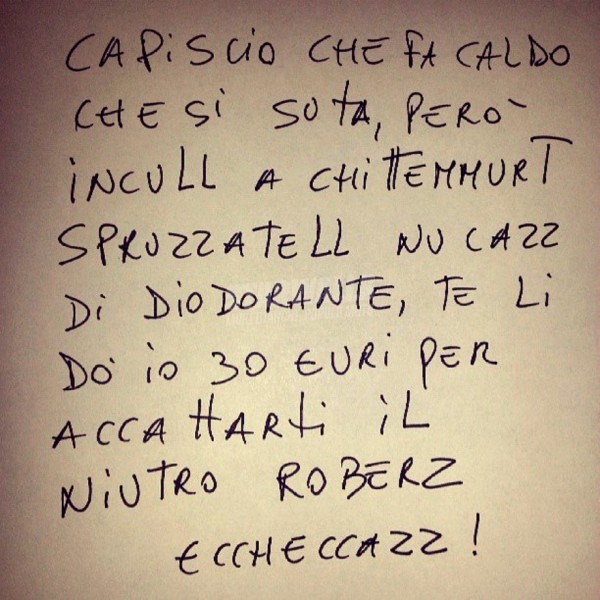 CAPiSCiO CHE FA CALDO
CHE Si SUTA, PERO`
iNCULL A CHiTTEMMURT
SPRUZZATELL NU CAZZ
Di DIODORANTE, TE Li
DO' io 30 EURi PER
ACCATTARti iL
NiUTRO ROBERZ
ECCHECCAZZ!